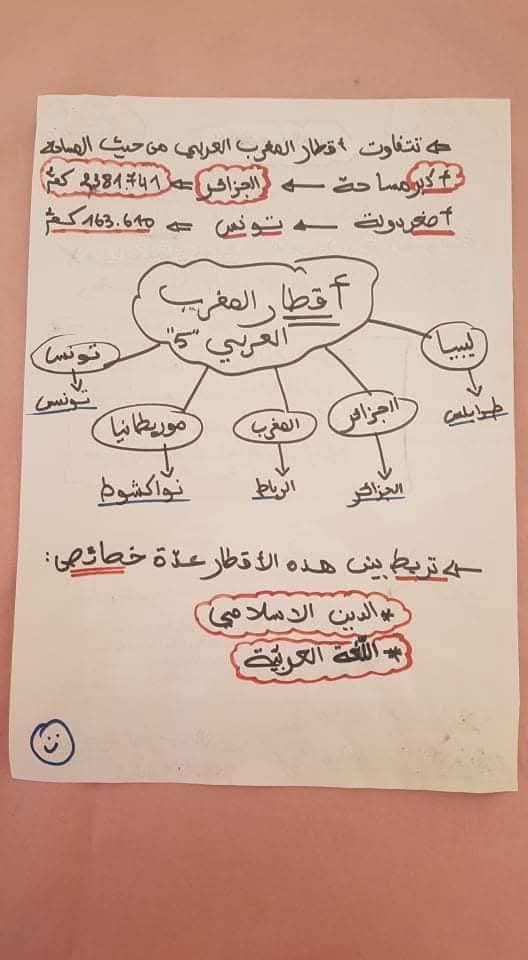 ⇐ تتفاوت أقطار المغرب العربي من حيث المساحة
أكبر مساحة ← الجزائر ⇐ 2381.741 كم²
أصغر دولة ← تونس ⇐ 163.610 كم²
أقطار المغرب
العربي "5"
ليبيا
طرابلس
الجزائر
الجزائر
المغرب
الرباط
موريطانيا
نواكشوط
تونس
تونس
⇐ تربط بين هذه الأقطار عدّة خصائص:
* الدين الاسلامي
* اللّغة العربيّة